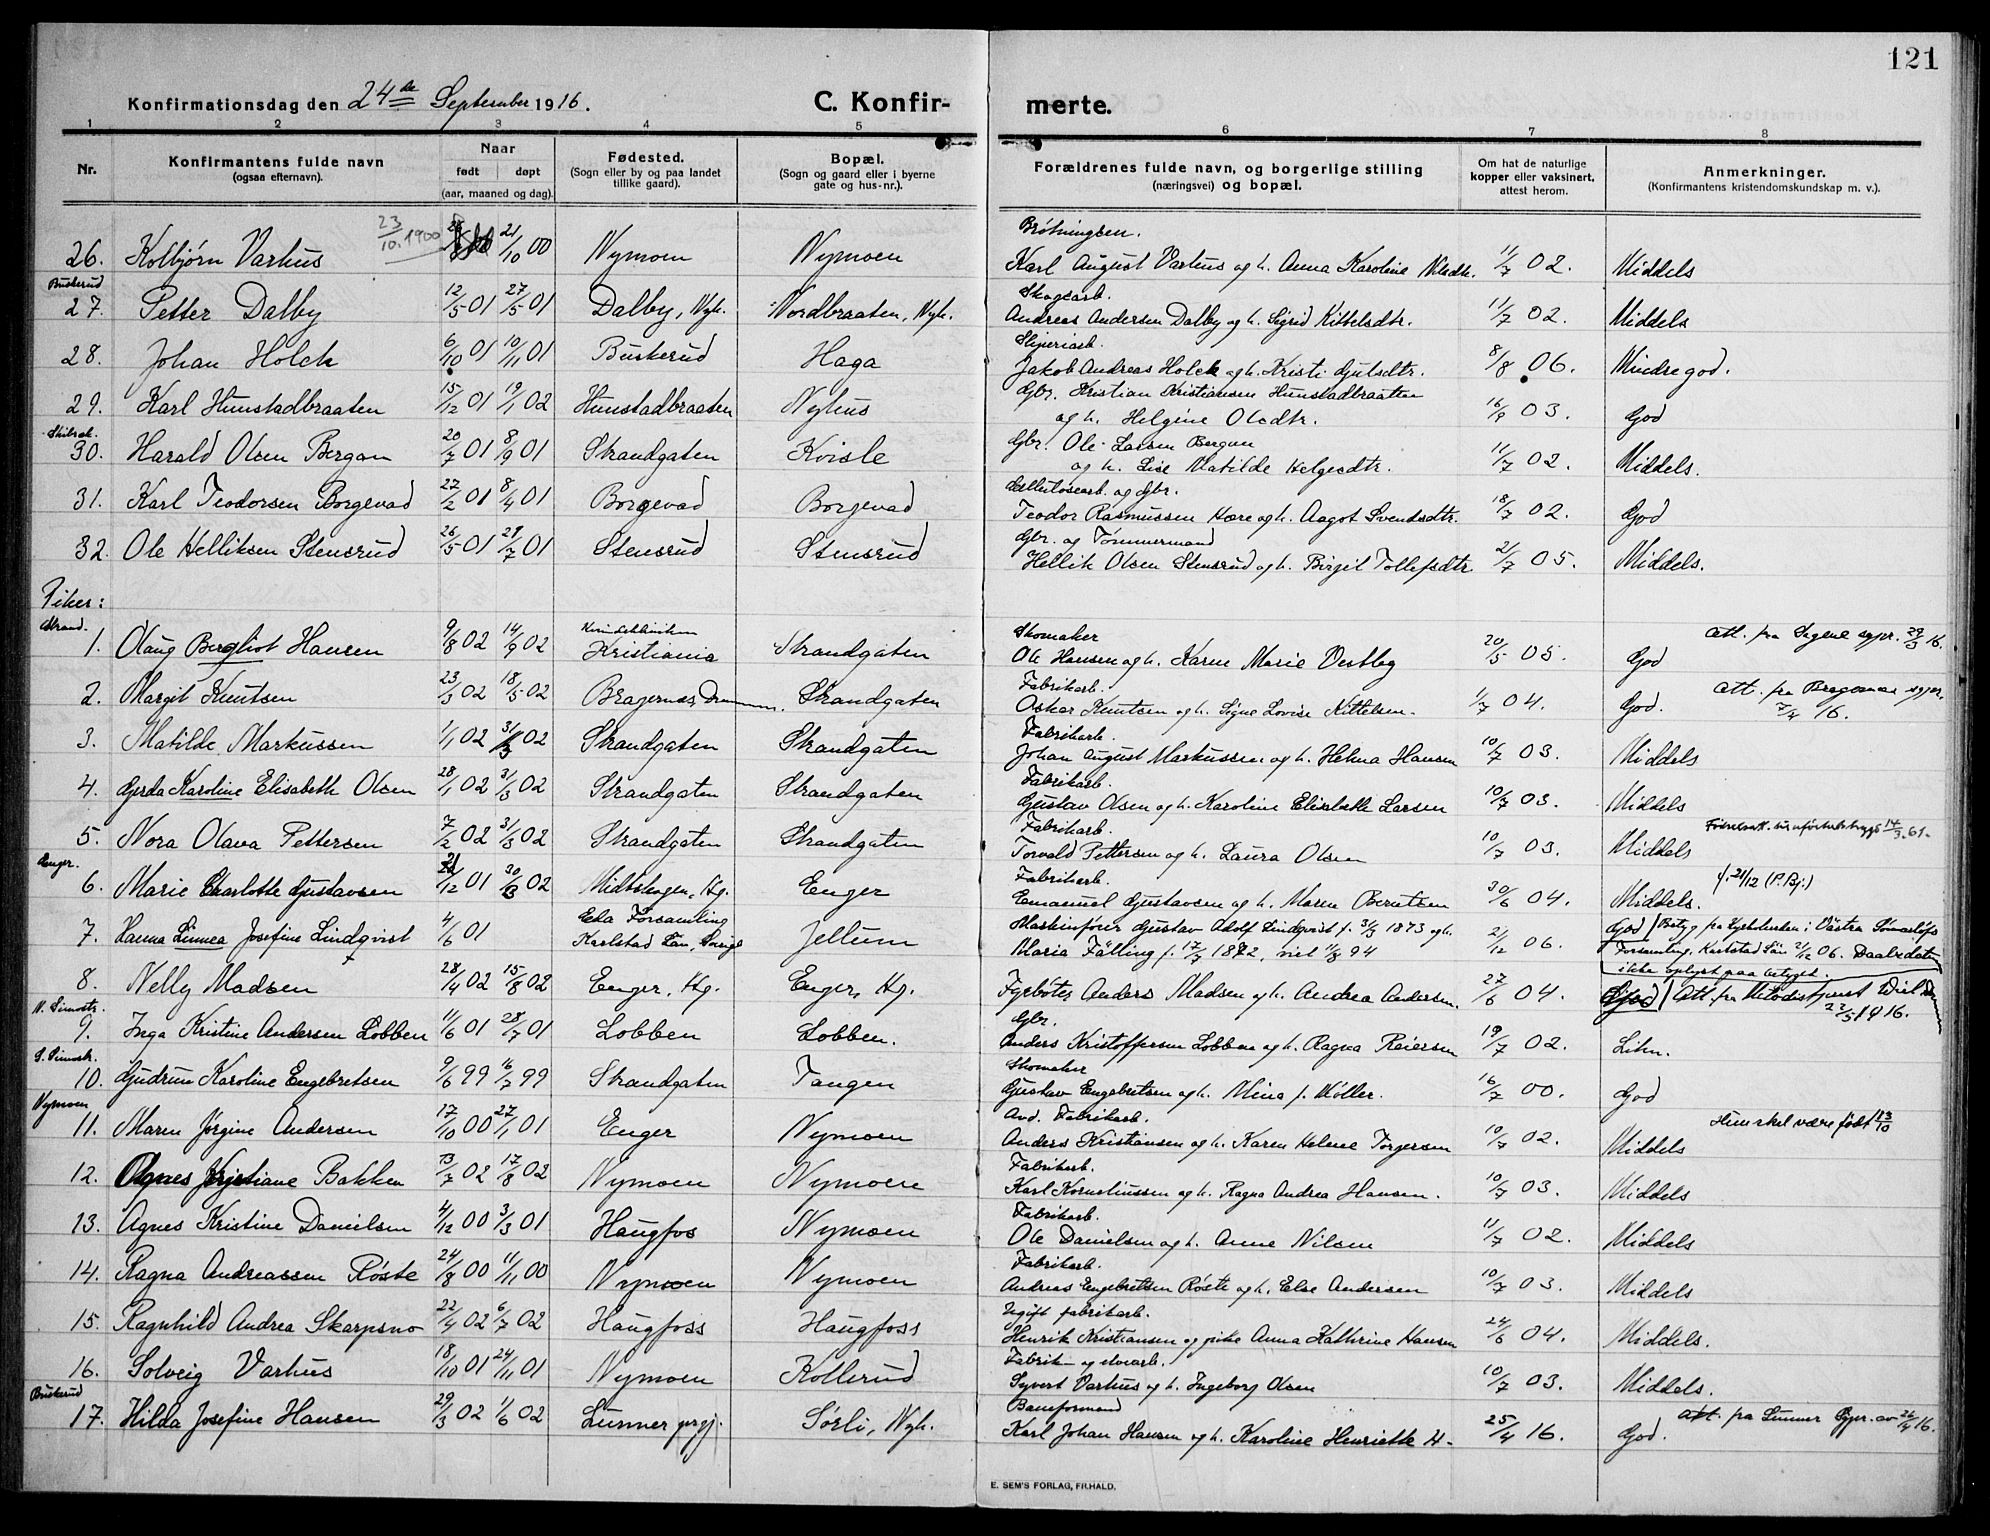 121
Konfirmationsdag den 24de September 1916. C. Konfir- merte.
1 2 3 4 5 6 7 8
Nr. Konfirmantens fulde navn (ogsaa efternavn). Naar født døpt (aar, maaned og dag). Fødested. (Sogn eller by og paa landet tillike gaard). Bopæl. (Sogn og gaard eller i byerne gate og hus-nr.). Forældrenes fulde navn, og borgerlige stilling (næringsvei) og bopæl. Om hat de naturlige kopper eller vaksinert, attest herom. Anmerkninger. (Konfirmantens kristendomskundskap m. v.).
23/10.1900
26. Kolbjørn Varhus 21/10 00 Nymoen Nymoen Karl August Varhus og h. Anna Karoline 11/7 02. Middels
Buskerud
Skogsarb.
27. Petter Dalby 12/5 01 27/5 01 Dalby, Nyh. Nordbraaten, Nyh. Andreas Andersen Dalby og h. Sigrid Kittelsdtr. 11/7 02. Middels
Sliperiarb.
28. Johan Holck 6/10 01 10/11 01 Buskerud Haga Jakob Andreas Holck og h. Kristi Gjulsdtr. 8/8 06. Mindre god.
Gbr. Kristian Kristiansen Hunstadbraaten
29. Karl Hunstadbraaten 15/12 01 19/1 02 Hunstadbraaten Nyhus og h. Helgine Olsdtr. 16/9 03. God
Gbr. Ole Larsen Bergan
30. Harald Olsen Bergan 20/7 01 8/9 01 Strandgaten Kvisle og h. Lise Matilde Helgesdtr. 11/7 02. Middels.
Cellulosearb. og Gbr.
31. Karl Teodorsen Borgevad 27/2 01 8/4 01 Borgevad Borgevad Teodor Rasmussen Hære og h. Aagot Svendsdtr. 18/7 02. God
Gbr. og Tømmermand
32. Ole Helliksen Stensrud 26/5 01 28/7 01 Stensrud Stensrud Hellik Olsen Stensrud og h. Birgit Tollefsdtr. 21/7 05. Middels.
Piker:
Strand.
Kvindeklinikken Skomaker Att. fra Sagene sgpr. 29/3 16.
1. Olaug Bergliot Hansen 9/8 02 14/9 02 Kristiania Strandgaten Ole Hansen og h. Karen Marie Vestby 20/5 05. God
Fabrikarb. Att. fra Bragernes sgpr.
2. Margit Knutsen 23/3 02 18/5 02 Bragernes, Drammen. Strandgaten Oskar Knutsen og h. Signe Lovise Kittelsen. 1/7 04. God. 7/4 16.
Fabrikarb.
3. Matilde Markussen 1/1 02 31/3 02 Strandgaten Strandgaten Johan August Markussen og h. Helma Hansen 10/7 03. Middels
Fabrikarb.
4. Gerda Karoline Elisabeth Olsen 28/1 02 31/3 02 Strandgaten Strandgaten Gustav Olsen og h. Karoline Elisabeth Larsen 10/7 03. Middels
Fabrikarb. 14/3.61.
5. Nora Olava Pettersen 7/2 02 31/3 02 Strandgaten Strandgaten Torvald Pettersen og h. Laura Olsen 10/7 03. Middels
Enger.
Fabrikarb. f. 21/12 (P. Bj.)
6. Marie Charlotte Gustavsen 21/12 01 30/3 02 Midtskogen, Hg. Enger Emanuel Gustavsen og h. Maren Berntsen 30/6 04. Middels.
Eda Församling Maskinfører Gustav Adolf Lindqvist f. 3/3 1873 og h. God / Betyg fra Kyrkoherden i Västra
7. Hanna Linnea Josefine Lindqvist 4/6 01 Karlstad Län, Sverige Jellum Maria Fälling f. 17/7 1872, viet 11/8 94 21/12 06. Forsamling, Karlstad Län 21/12 06. Daabsdatum
ikke oplyst paa betyget.
8. Nelly Madsen 28/4 02 15/8 02 Enger, Hg. Enger, Hg. Fyrbøter Anders Madsen og h. Andrea Andersen. 27/6 04. God / Att. fra Metodistprest
22/5 1916.
Gbr.
9. Inga Kristine Andersen Lobben 11/6 01 28/7 01 Lobben Lobben. Anders Kristoffersen Lobben og h. Ragna Reiersen 19/7 02.
Skomaker
10. Gudrun Karoline Engebretsen 9/6 99 16/7 99 Strandgaten Tangen Gustav Engebretsen og h. Mina f. Møller. 16/7 00. God
Nymoen
Avd. Fabrikarb. Hun skal være født 13/10
11. Maren Jørgine Andersen 17/10 00 27/1 01 Enger Nymoen Anders Kristiansen og h. Karen Helene Torgersen 10/7 02. Middels
Fabrikarb.
12. Agnes Kristiane Bakken 13/7 02 17/8 02 Nymoen Nymoen Karl Korneliussen og h. Ragna Andrea Hansen. 10/7 03. Middels
Fabrikarb.
13. Agnes Kristine Danielsen 4/12 00 3/3 01 Haugfos Nymoen Ole Danielsen og h. Anne Nilsen 11/7 02. Middels
Fabrikarb.
14. Ragna Andreassen Røste 24/8 00 11/11 00 Nymoen Nymoen Andreas Engebretsen Røste og h. Else Andersen 10/7 03. Middels
Ugift fabrikarb.
15. Ragnhild Andrea Skarpsno 22/4 02 6/7 02 Haugfoss Haugfoss Henrik Kristiansen og pike Anna Kathrine Hansen 24/6 04. Middels.
Fabrik- og elvearb.
16. Solveig Varhus 18/10 01 24/11 01 Nymoen Kollerud Syvert Varhus og h. Ingeborg Olsen 10/7 03. Middels.
Buskerud
Baneformand Att. fra Lunner Sgpr. av 26/4 16.
17. Hilda Josefine Hansen 29/3 02 1/6 02 Lunner prgj. Sørli, Nyh. Karl Johan Hansen og h. Karoline Henriette H- 25/4 16. God.
E. SEM'S FORLAG, FR.HALD.